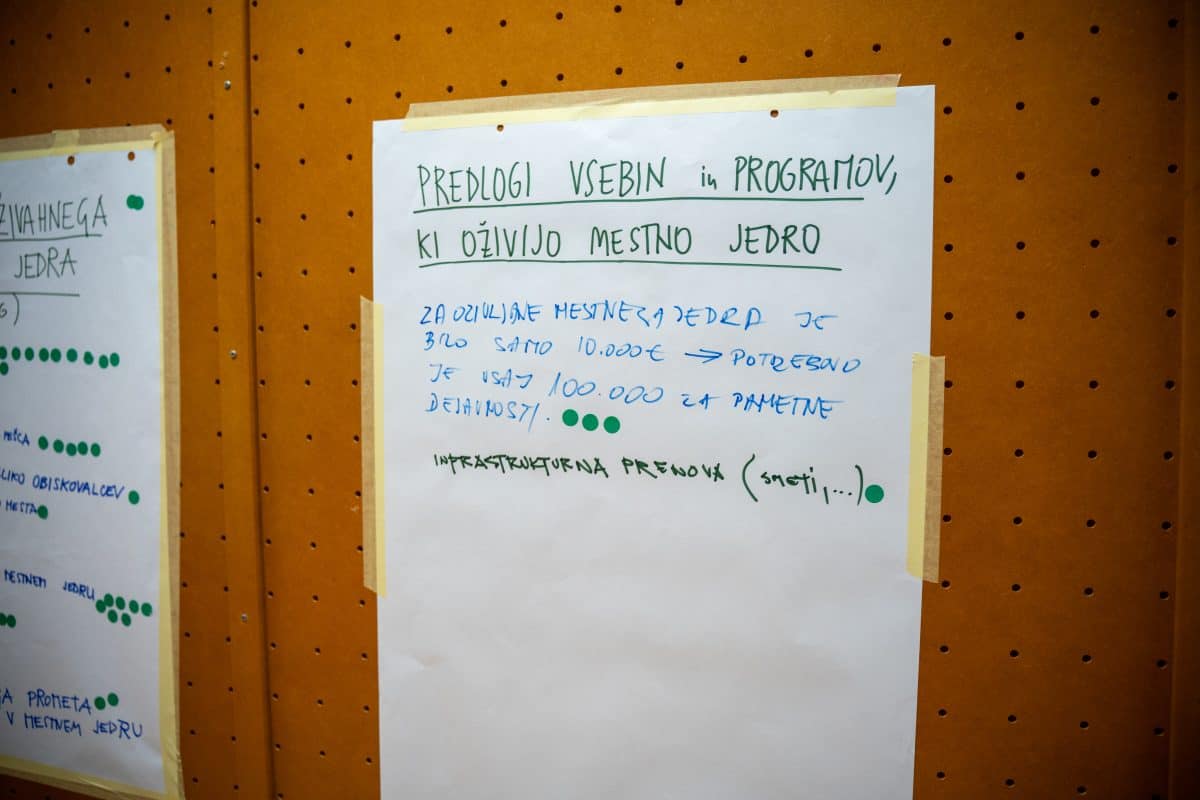 ŽIVAHNEGA
JEDRA
PREDLOGI VSEBIN in PROGRAMOV,
KI OŽIVIJO MESTNO JEDRO
ZA OZIVLJANJE MESTNEGA JEDRA JE
BILO SAMO 10.000€ → POTREBNO
JE VSAJ 100.000 ZA PAMETNE
DEJAVNOSTI.
INFRASTRUKTURNA PRENOVA (SMETI,...)
OBISKOVALCEV
MESTA
MESTNEM JEDRU
PROMETA
V MESTNEM JEDRU